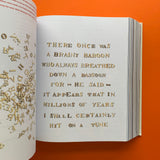 THERE ONCE WAS
A BRAINY BABOON
WHO ALWAYS BREATHED
DOWN A BASSOON
FOR HE SAID
IT APPEARS THAT IN
MILLIONS OF YEARS
I SHALL CERTAINLY
HIT ON A TUNE